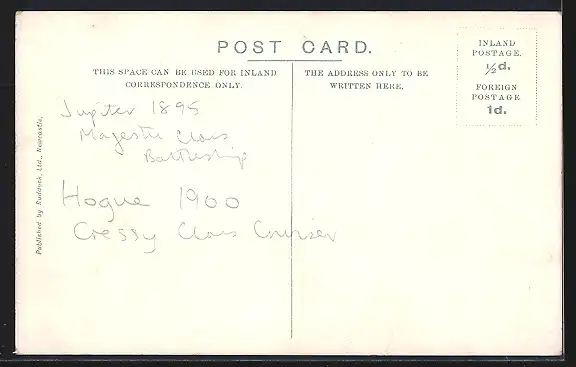 POST CARD.
THIS SPACE CAN BE USED FOR INLAND
CORRESPONDENCE ONLY.
THE ADDRESS ONLY TO BE
WRITTEN HERE.
INLAND
POSTAGE.
½d.
FOREIGN
POSTAGE
1d.
Jupiter 1895
Majestic Class
Battleship
Hogue 1900
Cressy Class Cruiser
Published by Ruddock, Ltd., Newcastle.